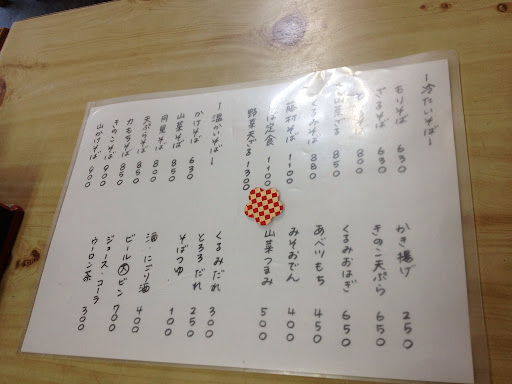 ー冷たいそばー
もりそば 630
ざるそば 630
800
山菜ざる 850
くるみそば 880
藤村そば 1100
そば定食 1100
野菜天ざる 1300
ー温かいそばー
かけそば 630
山菜そば 850
月見そば 800
天ぷらそば 850
力もちそば 850
きのこそば 900
山かけそば 900
かき揚げ 250
きのこ天ぷら 650
くるみおはぎ 650
あべツもち 450
みそおでん 400
山菜つまみ 500
くるみだれ 300
とろろだれ 250
そばつゆ 100
酒・にごり酒 400
ビール大ビン 700
ジュース・コーラ
ウーロン茶 300